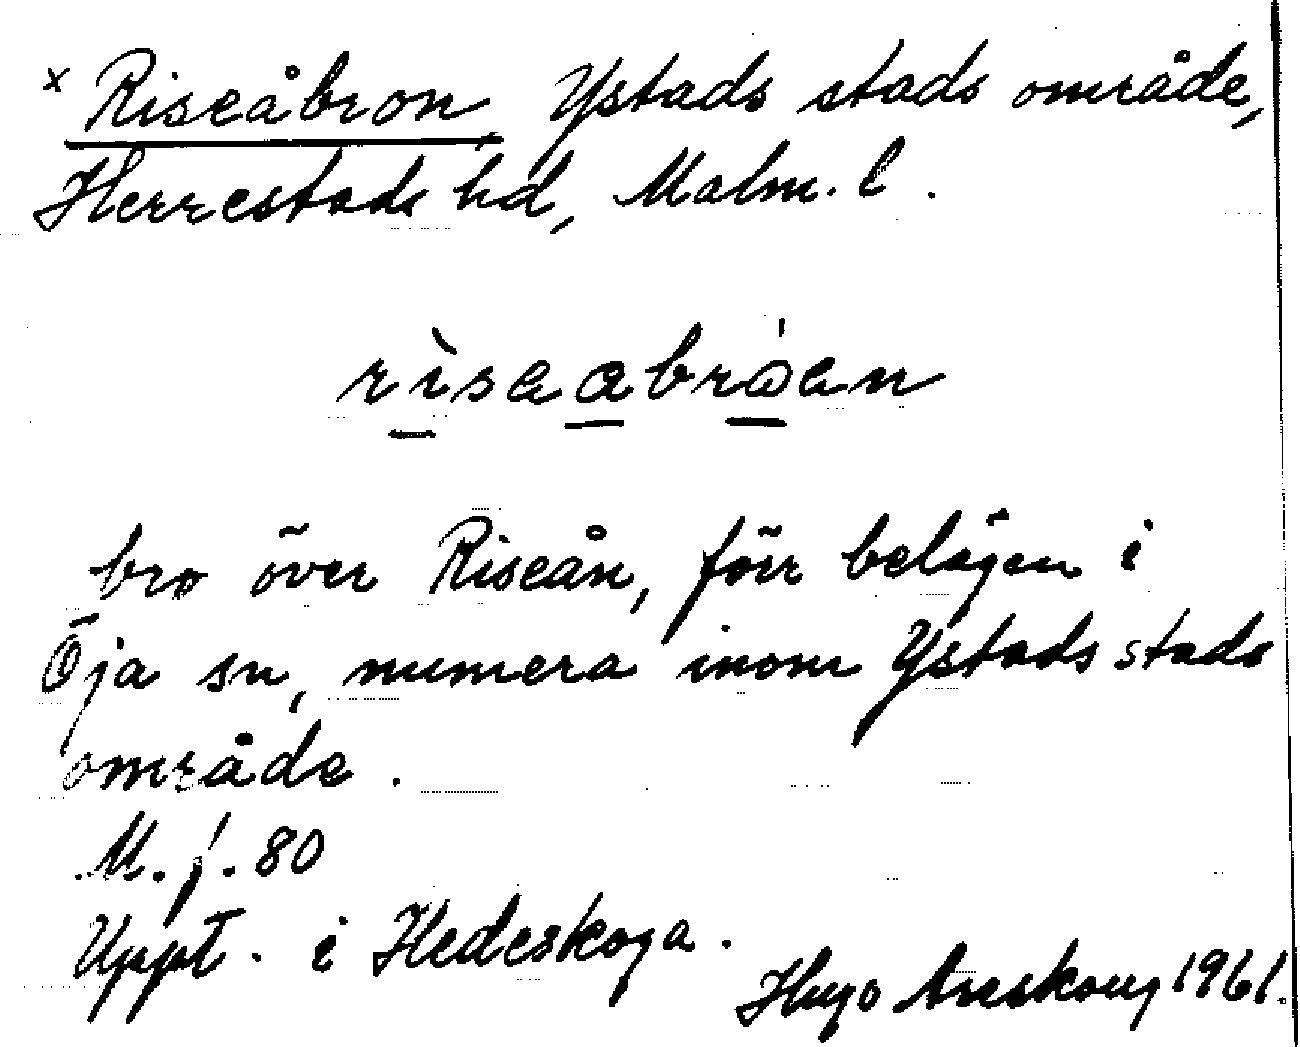 x Riseåbron, Ystads stads område,
Herrestads hd, Malm. l.
rìseabróen
bro över Riseån, förr belägen i
Öja sn, numera inom Ystads stads
område.
M. f. 80
Uppt. i Hedeskoga.
Hugo Areskoug 1961.